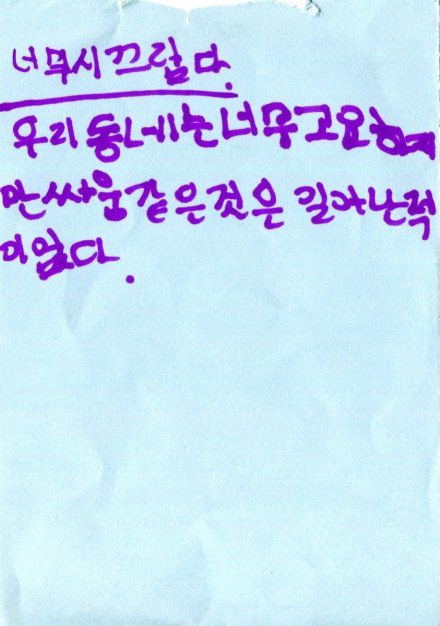 너무시끄럽다.
우리동네는너무고요하지
만싸움같은것은 일아난적
이없다.